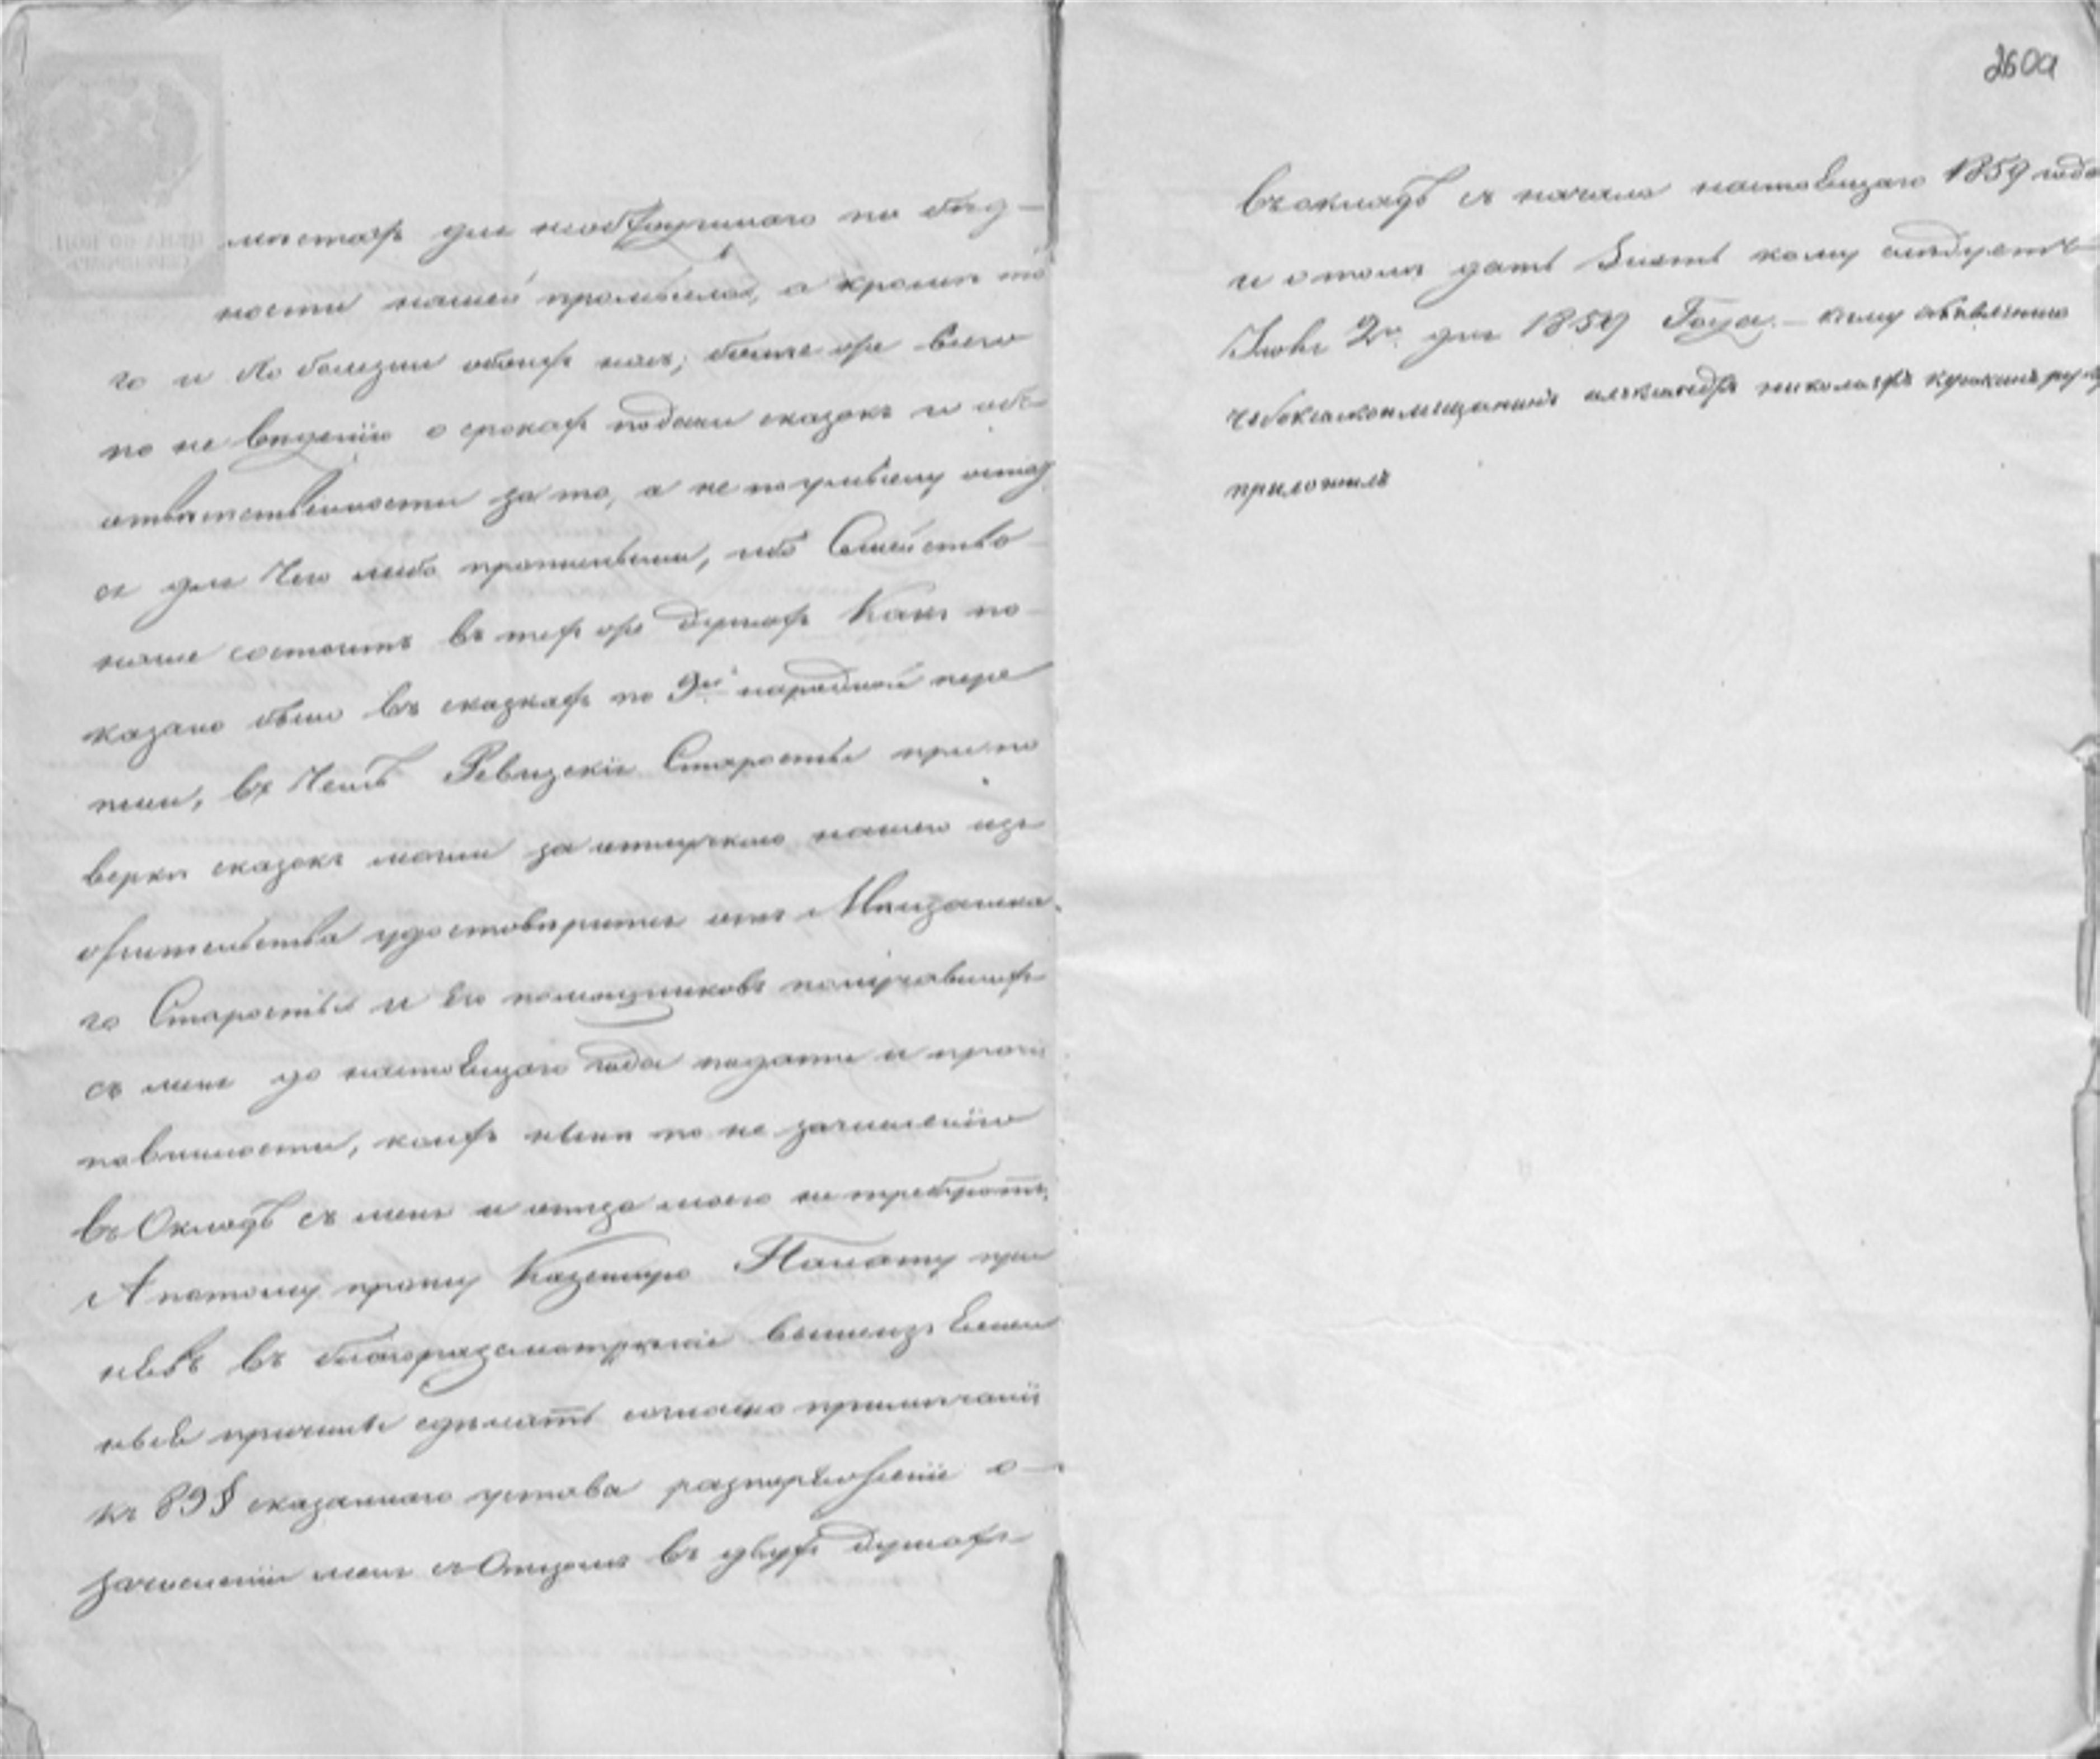 мѣстахъ для необходимаго по бѣд-
ности нашей промысла, а кроме то
го и по болезни обоихъ насъ; болѣе же всего
по не вѣденію о срокахъ подачи сказокъ и об
отвѣтственности за то, а не по умыслу
ся для чего либо противнымъ, ибо Семейство
наше состоитъ въ техъ же душахъ Какъ по-
казано было въ сказкахъ по 9й народной пере
писи, въ чемъ Ревизскіе Старосты при по
верки сказокъ могли за отлучкою нашею изъ
жительства удостовѣрится отъ Мѣщанска
го Старосты и его помощниковъ получавшихъ
съ меня до настоящаго года подати и проч:
повинности, коихъ нынѣ по не зачисленію
въ Окладъ съ меня и отца моего не требуютъ,
А потому прошу Казенную Палату при
нявъ въ благоразсмотреніе вышеизъясненн
ныя причины сделать согласно примѣчанія
къ 89 § сказаннаго устава разпоряженіе о-
зачисленіи меня съ Отцомъ въ двухъ душахъ
260а
въ окладъ съ начала настоящаго 1859 года
и о томъ дать знать кому слѣдуетъ
2го дня 1859 Года.- к сему объявленію
чебоксарскои мещанинъ александръ николаевъ руку
приложилъ
ЦЕНА 90 КОП.
СЕРЕБРОМЪ